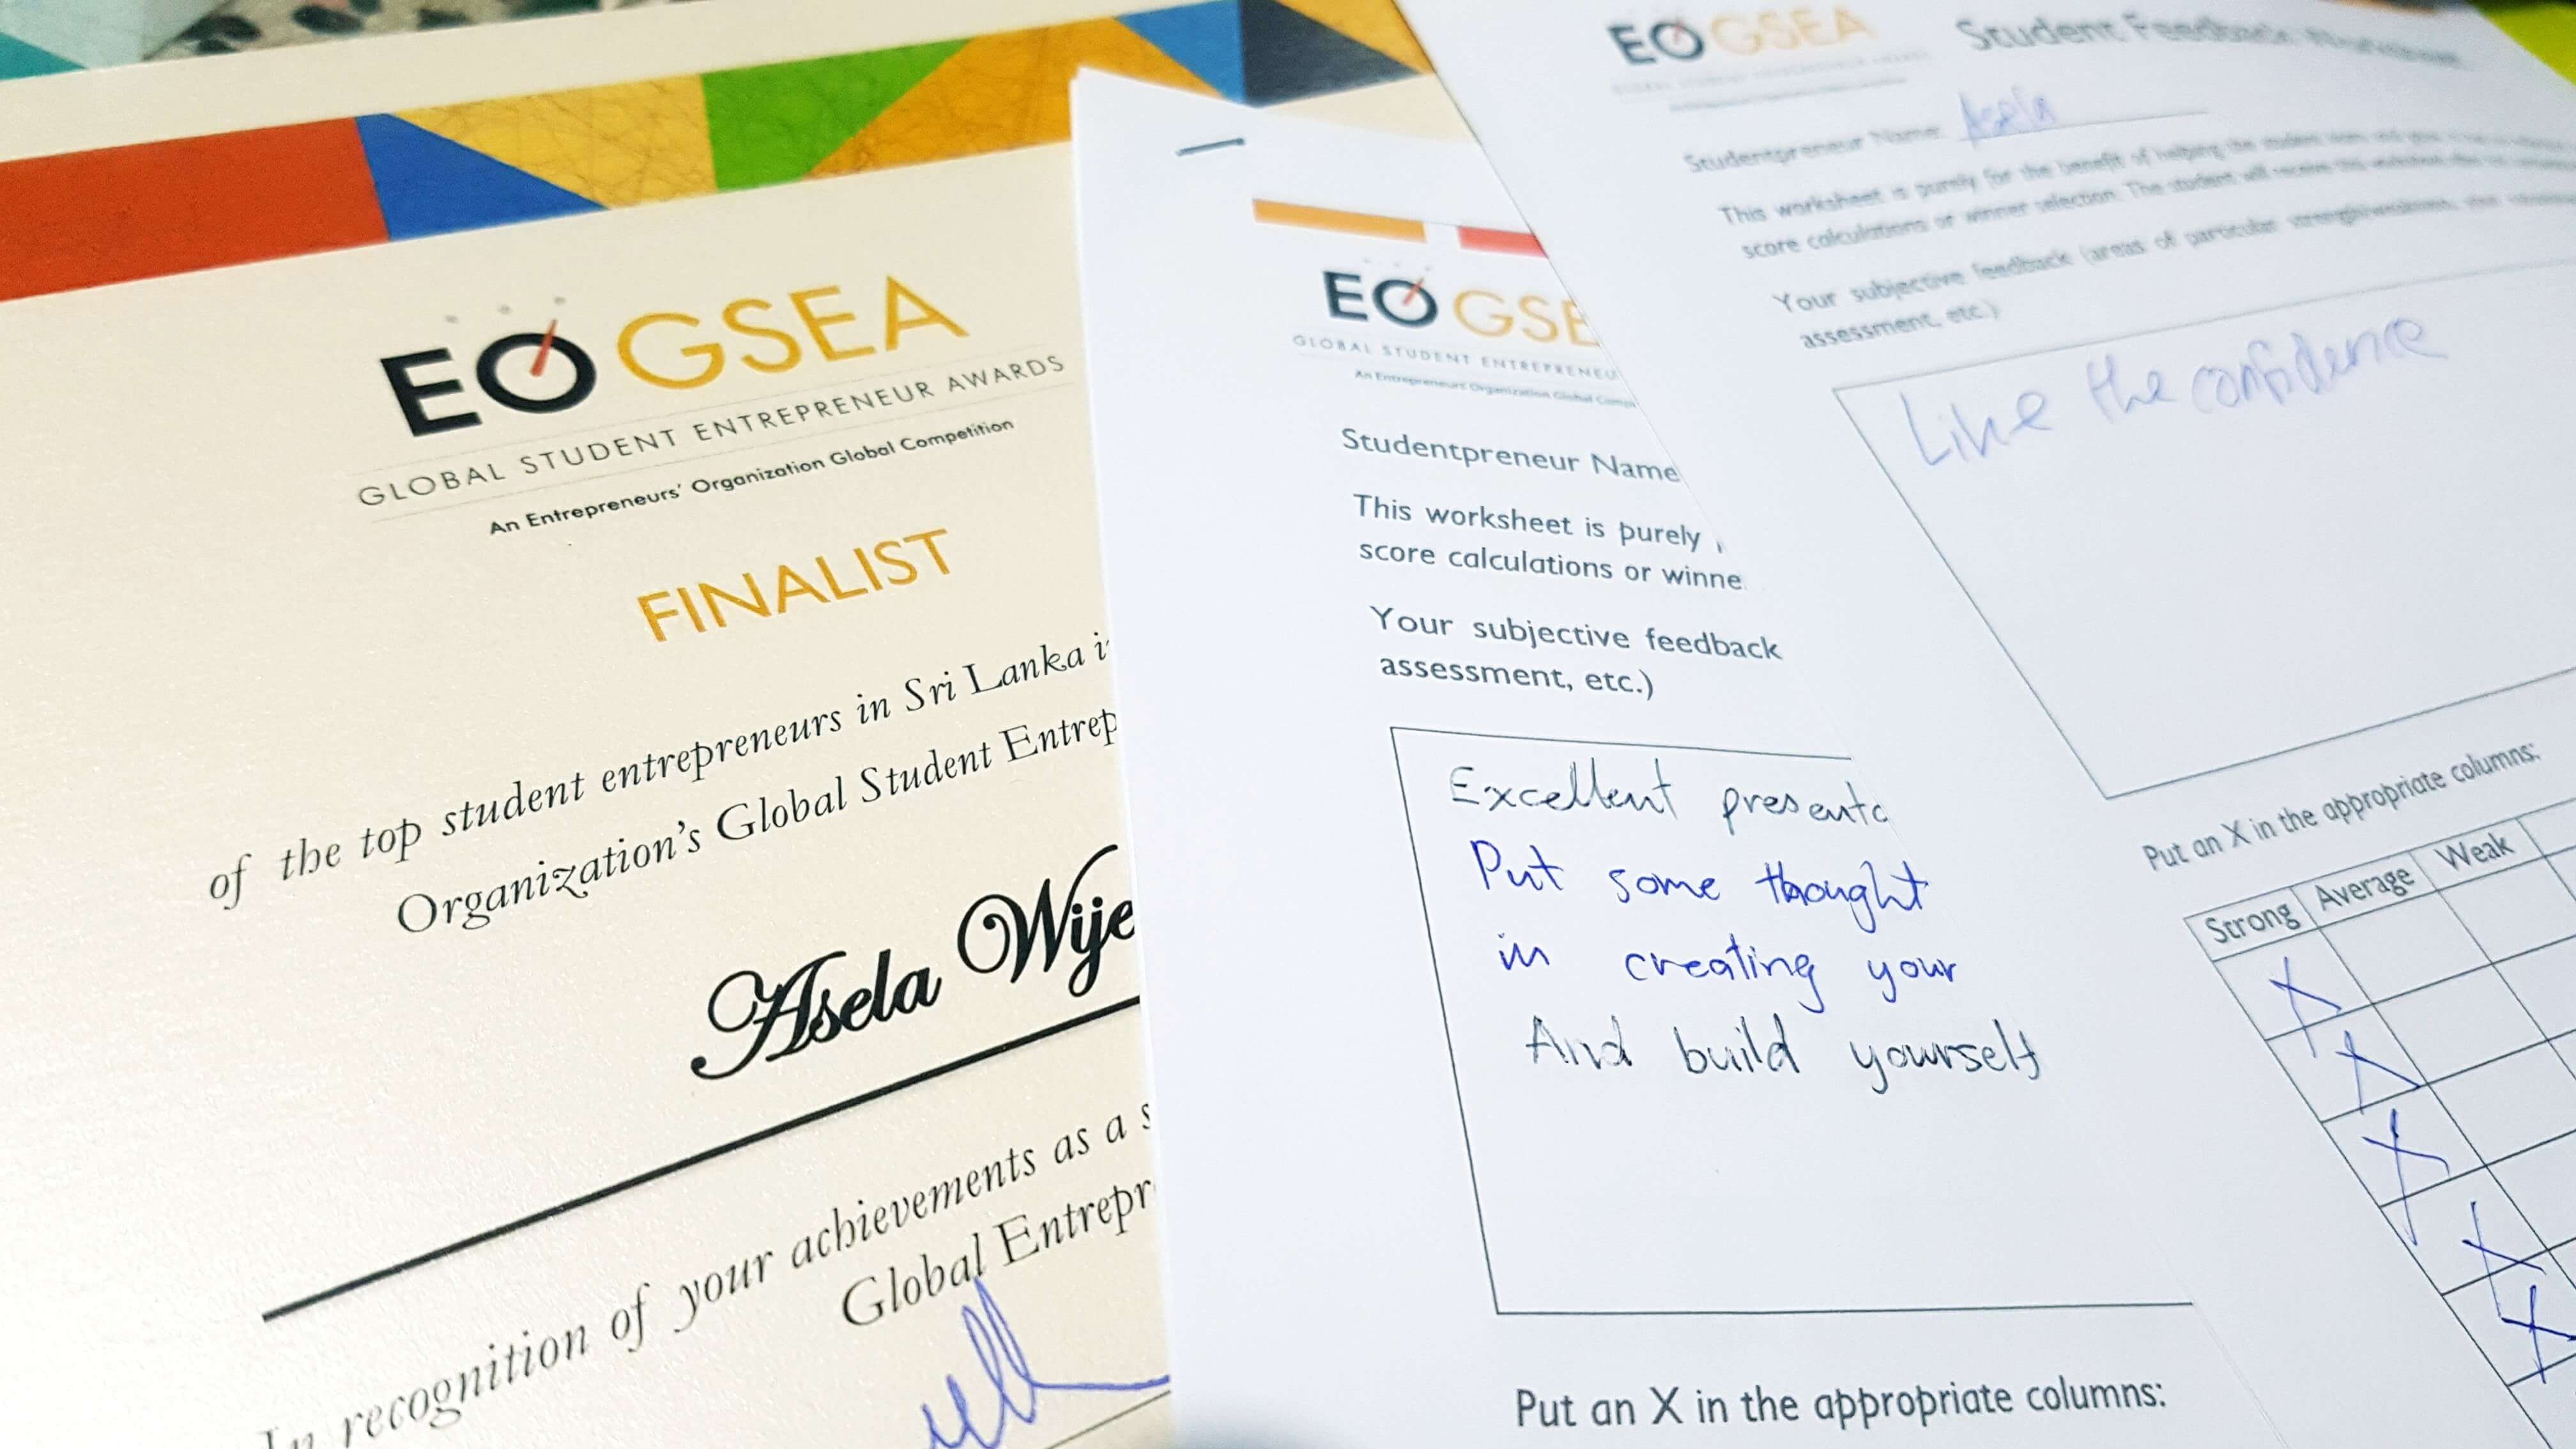 EO GSEA
GLOBAL STUDENT ENTREPRENEUR AWARDS
An Entrepreneurs' Organization Global Competition
FINALIST
of the top student entrepreneurs in Sri Lanka
Organization's Global Student Entrep
Asela Wije
In recognition of your achievements as a s
Global Entrepr
EO GSE
GLOBAL STUDENT ENTREPRENEU
An Entrepreneurs Organization Global Comp
Studentpreneur Name
This worksheet is purely
score calculations or winne
Your subjective feedback
assessment, etc.)
Excellent presenta
Put some thought
in creating your
And build yourself
Put an X in the appropriate columns:
EO GSEA
Student Feedback
Studentpreneur Name: Asela
This worksheet is purely for the benefit of helping the student
score calculations or winner selection. The student will receive this
Your subjective feedback (areas of particular strength/weakness,
assessment, etc.)
Like the confidence
Put an X in the appropriate columns:
Strong Average Weak
X
X
X
X
X